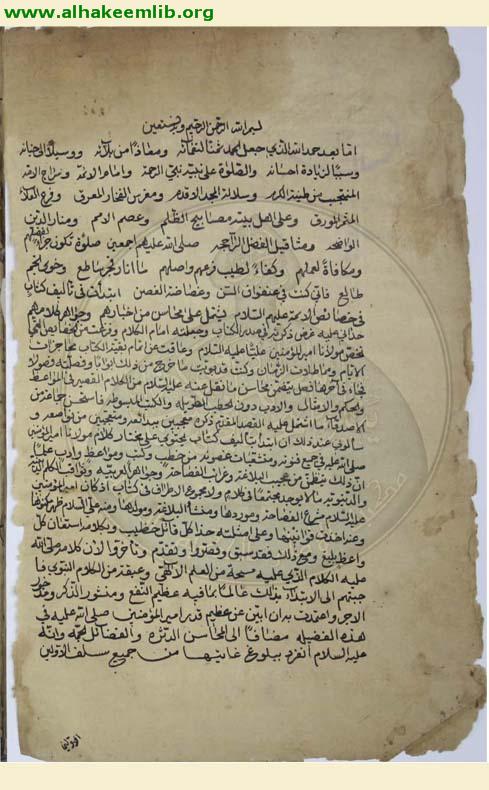 www.alhakeemlib.org
بسم الله الرحمن الرحيم وبه نستعين
اما بعد حمد الله الذي جعل الحمد ثمنا لنعمائه ومعاذا من بلائه ووسيلا الى جنانه
وسببا لزيادة احسانه والصلوة على نبيه نبي الرحمة وامام الائمة وسراج الامة
المنتجب من طينة الكرم وسلالة المجد الاقدم ومغرس الفخار المعرق وفرع العلاء
المثمر المورق وعلى اهل بيته مصابيح الظلم وعصم الامم ومنار الدين
الواضحة ومثاقيل الفضل الراجحة صلى الله عليهم اجمعين صلوة تكون
ومكافاة لعملهم وكفاء لطيب فرعهم واصلهم ما انار فجر ساطع وخوى نجم
طالع فاني كنت في عنفوان السن وغضاضة الغصن ابتدات في تاليف كتاب
في خصائص الائمة عليهم السلام يشتمل على محاسن من اخبارهم وجواهر كلامهم
حداني عليه غرض ذكرته في صدر الكتاب وجعلته امام الكلام وفرغت من الخصائص التي
تخص مولانا امير المؤمنين عليا عليه السلام وعاقت عن اتمام بقية الكتاب محاجزات
الايام ومماطلات الزمان وكنت قد بوبت ما خرج من ذلك ابوابا وفصلته فصولا
فجاء في آخرها فصل يتضمن محاسن ما نقل عنه عليه السلام من الكلام القصير في المواعظ
والحكم والامثال والآداب دون الخطب الطويلة والكتب المبسوطة فاستحسن جماعة من
الاصدقاء ما اشتمل عليه الفصل المقدم ذكره معجبين ببدائعه ومتعجبين من نواصعه و
سالوني عند ذلك ان ابتدا بتاليف كتاب يحتوي على مختار كلام مولانا امير المؤمنين
صلى الله عليه في جميع فنونه ومتشعبات غصونه من خطب وكتب ومواعظ وادب علما
ان ذلك يتضمن من عجائب البلاغة وغرائب الفصاحة وجواهر العربية وثواقب الكلم الدينية
والدنيوية ما لا يوجد مجتمعا في كلام ولا مجموع الاطراف في كتاب اذ كان امير المؤمنين
عليه السلام مشرع الفصاحة وموردها ومنشا البلاغة ومولدها ومنه عليه السلام ظهر مكنونها
وعنه اخذت قوانينها وعلى امثلته حذا كل قائل خطيب وبكلامه استعان كل
واعظ بليغ ومع ذلك فقد سبق وقصروا وتقدم وتاخروا لان كلامه صلى الله
عليه الكلام الذي عليه مسحة من العلم الالهي وعبقة من الكلام النبوي فا
جبتهم الى الابتداء بذلك عالما بما فيه عظيم النفع ومنشور الذكر ومذخور
الاجر واعتمدت به ان ابين عن عظيم قدر امير المؤمنين صلى الله عليه في
هذه الفضيلة مضافا الى المحاسن الدثرة والفضائل الجمة وانه
عليه السلام انفرد ببلوغ غايتها من جميع سلف الاولين